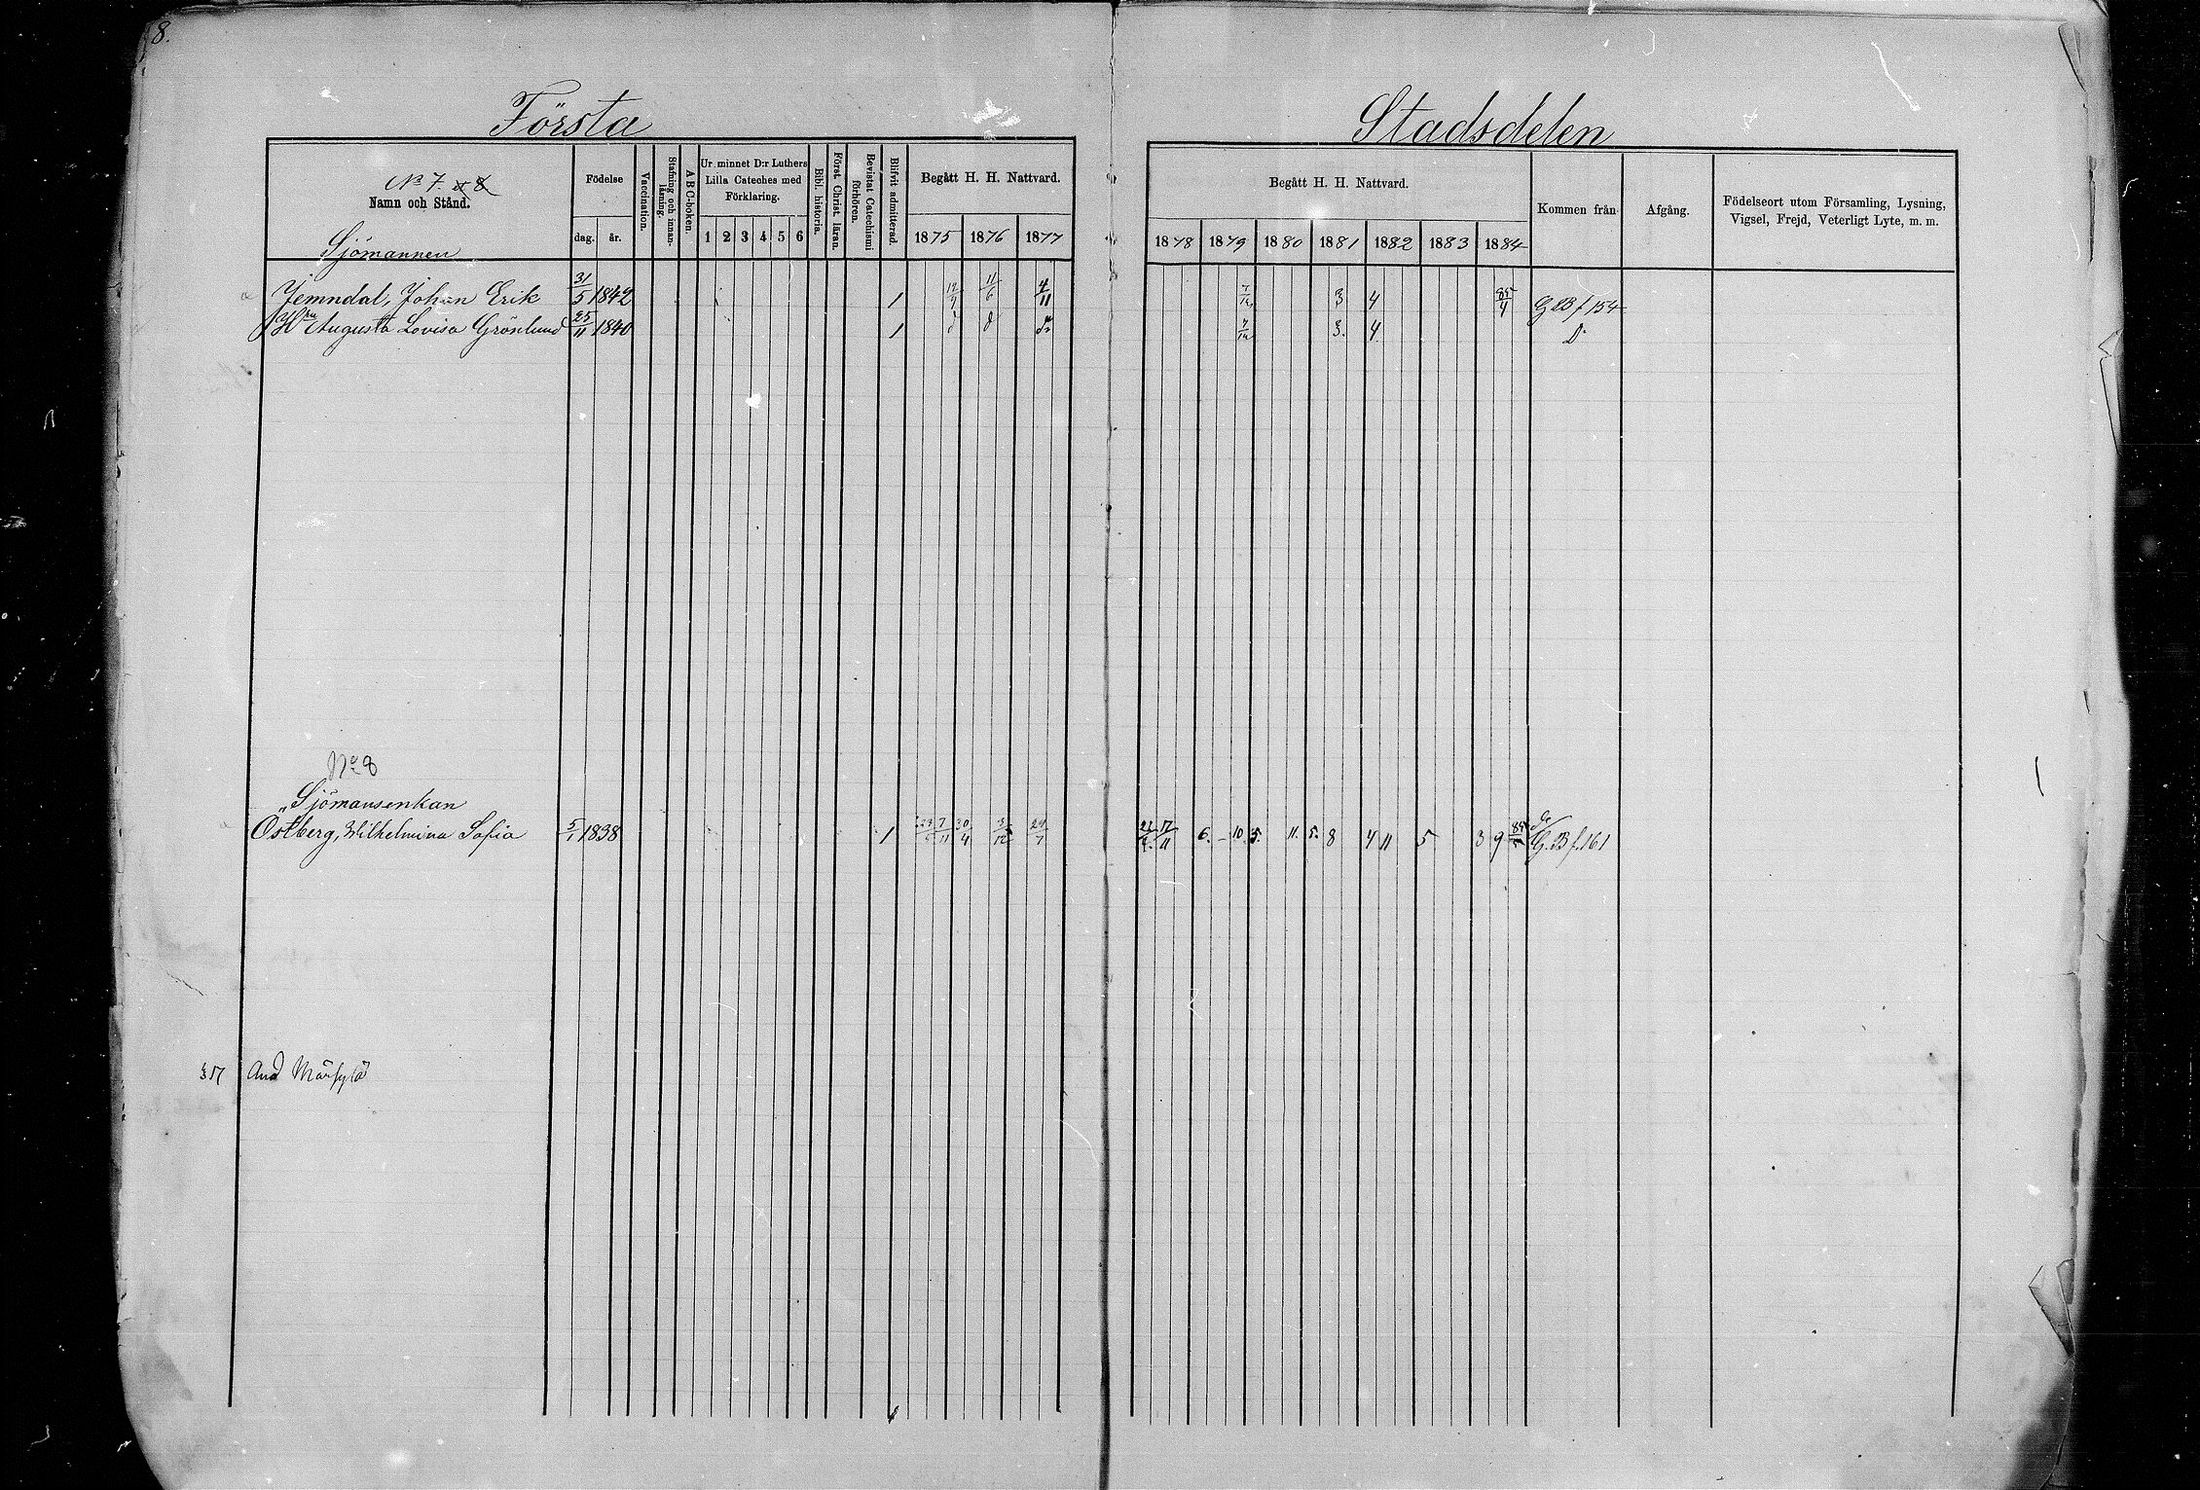 8.
Första
Stadsdelen
No 7. & 8
Namn och Stånd.
Sjömannen
Födelse
dag. år.
Vaccination.
Stafning och innanläsning.
A B C-boken.
Ur minnet D:r Luthers
Lilla Cateches med
Förklaring.
1 2 3 4 5 6
Bibl. historia.
Först. Christ. läran.
Bevistat Catechismi förhören.
Blifvit admitterad.
Begått H. H. Nattvard.
1875 1876 1877
Begått H. H. Nattvard.
1878 1879 1880 1881 1882 1883 1884
Kommen från
Afgång.
Födelseort utom Församling, Lysning,
Vigsel, Frejd, Veterligt Lyte, m. m.
Jemndal, Johan Erik 31/5 1842 1 11/6 4/11 7/12 3 4 85/4 G B f 154
Hru Augusta Lovisa Grönlund 25/11 1840 1 d d do 7/12 3. 4 D:
No 8
Sjömansenkan
Östberg, Wilhelmina Sofia 5/1 1838 1 7/11 30/4 3/12 29/7 17/11 6. - 10. 5. 11. 5. 8 4 11 5 3 9 G. B f. 161
And